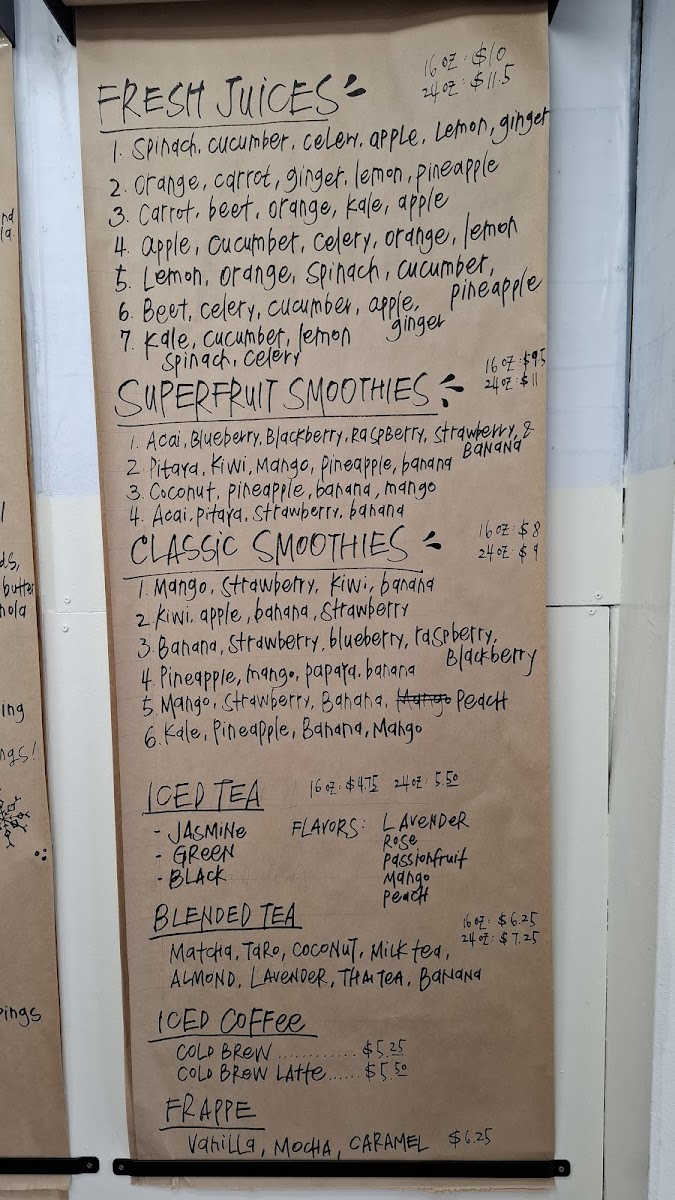 16 oz: $10
24 oz: $11.5
FRESH JUICES
1. Spinach, cucumber, celery, apple, Lemon, ginger
2. Orange, carrot, ginger, lemon, pineapple
3. Carrot, beet, orange, kale, apple
4. apple, cucumber, celery, orange, lemon
5. Lemon, orange, spinach, cucumber,
pineapple
6. Beet, celery, cucumber, apple,
ginger
7. Kale, cucumber, lemon
spinach, celery
16 oz: $9.5
24 oz: $11
SUPERFRUIT SMOOTHIES
1. Acai, Blueberry, Blackberry, Raspberry, Strawberry, &
BANANA
2. Pitaya, Kiwi, Mango, pineapple, banana
3. Coconut, pineapple, banana, mango
4. Acai, Pitaya, Strawberry, banana
CLASSIC SMOOTHIES
16 oz: $8
24 oz: $9
1. Mango, Strawberry, Kiwi, banana
2. Kiwi, apple, banana, Strawberry
3. Banana, Strawberry, blueberry, raspberry,
Blackberry
4. Pineapple, mango, papaya, banana
5. Mango, Strawberry, Banana, Mango Peach
6. Kale, Pineapple, Banana, Mango
ICED TEA
16 oz: $4.75 24 oz: 5.50
- JASMINE
- GREEN
- BLACK
FLAVORS: LAVENDER
Rose
Passionfruit
Mango
Peach
BLENDED TEA
16 oz: $6.25
24 oz: $7.25
Matcha, Taro, COCONUT, Milk tea,
ALMOND, LAVENDER, THAI TEA, BANANA
ICED COFFEE
COLD BREW ............ $5.25
COLD BREW LATTE...... $5.50
FRAPPE
Vanilla, MOCHA, CARAMEL $6.25
butter
ing
ngs!
pings